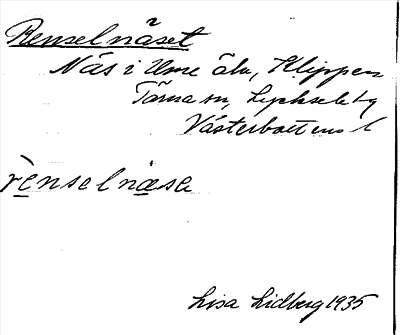 Renselnäset
Näs i Ume älv, Klippen
Tärna sn, Lycksele tg
Västerbottens l
renselnæse
Lisa Lidberg 1935